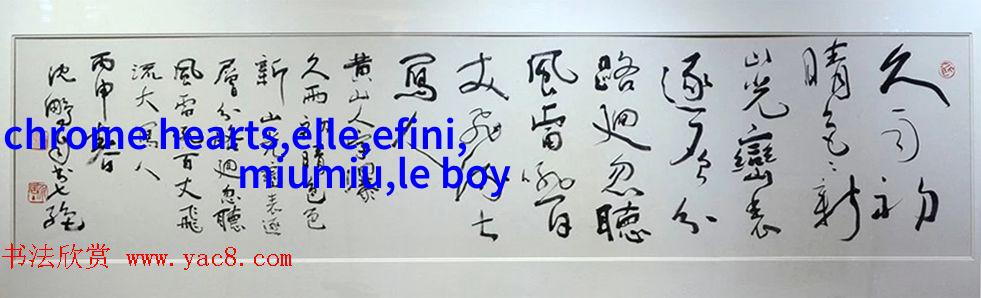 久雨初
晴色〻新
山光巒表
逐層分
路迴忽聽
風雷吼百
丈飛流大
寫人
黄山人字瀑
久雨初晴色色
新山光巒表逐
層分路迴忽聽
風雷吼百丈飛
流大寫人
丙申
沈鵬 书七絶
chrome hearts,elle,efini,
miumiu,le boy
书法欣赏 www.yac8.com